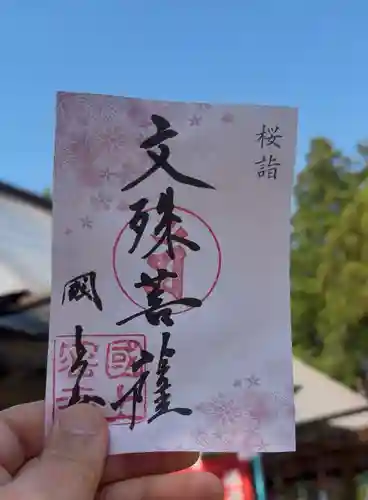 桜詣
文殊菩薩
國上寺